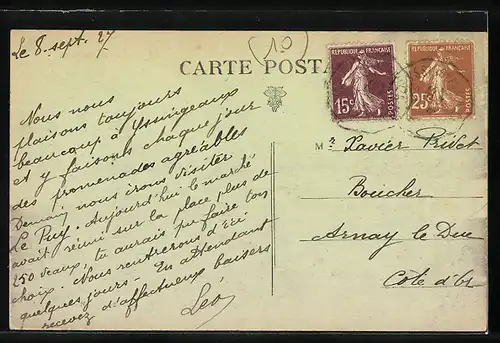 Le 8. sept. 27
(10)
CARTE POSTA
Nous nous
plaisons toujours
beaucoup à Yssingeaux
et y faisons chaque jour
des promenades agréables
Demain nous irons visiter
Le Puy. Aujourd'hui le marché
avait réuni sur la place plus de
250 veaux. tu aurais pu faire ton
choix. Nous rentrerons d'ici
quelques jours. En attendant
recevez d'affectueux baisers
Léo
REPUBLIQUE FRANÇAISE
15c
POSTES
REPUBLIQUE FRANÇAISE
25c
POSTES
Mr Xavier
Boucher
Arnay le Duc
Côte d'Or